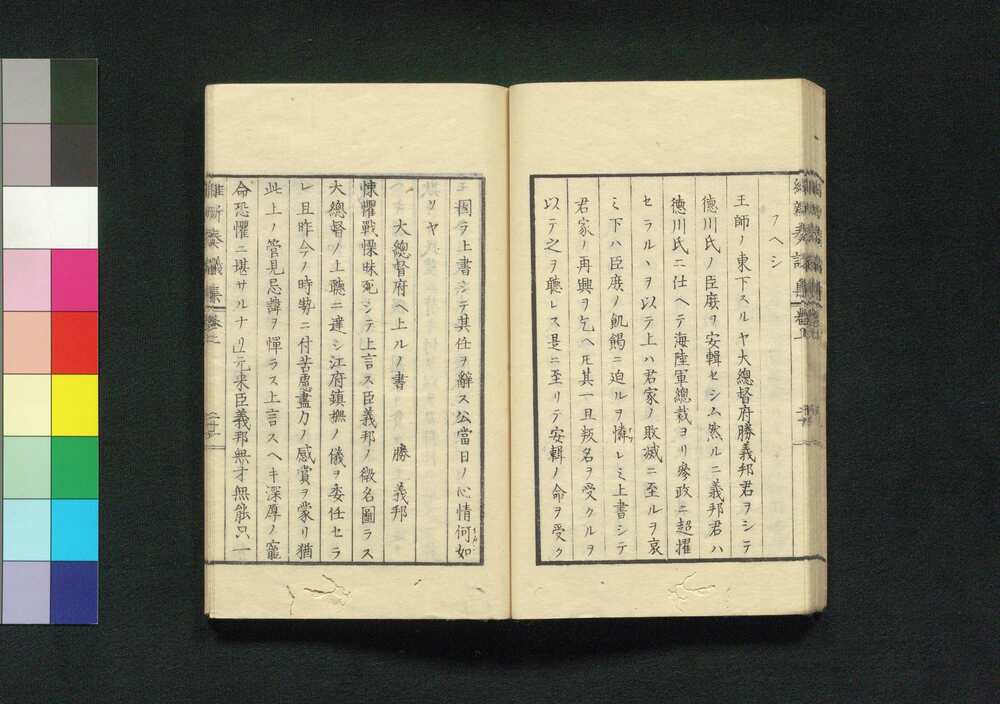 フヘシ
王師ノ東下スルヤ大總督府勝義邦君ヲシテ
德川氏ノ臣庶ヲ安輯セシム然ルニ義邦君ハ
德川氏ニ仕ヘテ海陸軍總裁ヨリ參政ニ超擢
セラルヽヲ以テ上ハ君家ノ敗滅ニ至ルヲ哀
ミ下ハ臣庶ノ飢餲ニ迫ルヲ憐レミ上書シテ
君家ノ再興ヲ乞ヘ𪜈其一旦叛名ヲ受クルヲ
以テ之ヲ聽レス是ニ至リテ安輯ノ命ヲ受ク
圄ラ上書シテ其任ヲ辭ス公當日ノ心情何如
ソヤ
大總督府ヘ上ルノ書 勝 義邦
悚懼戰慄昧死シテ上言ス臣義邦ノ微名圖ラス
大總督ノ上聽ニ達シ江府鎮撫ノ儀ヲ委任セラ
レ且昨今ノ時勢ニ付苦慮盡力ノ感賞ヲ蒙リ猶
此上ノ管見忌諱ヲ憚ラス上言スヘキ深厚ノ寵
命恐懼ニ堪サルナリ元来臣義邦無才無能只一
維新奏議集 卷之